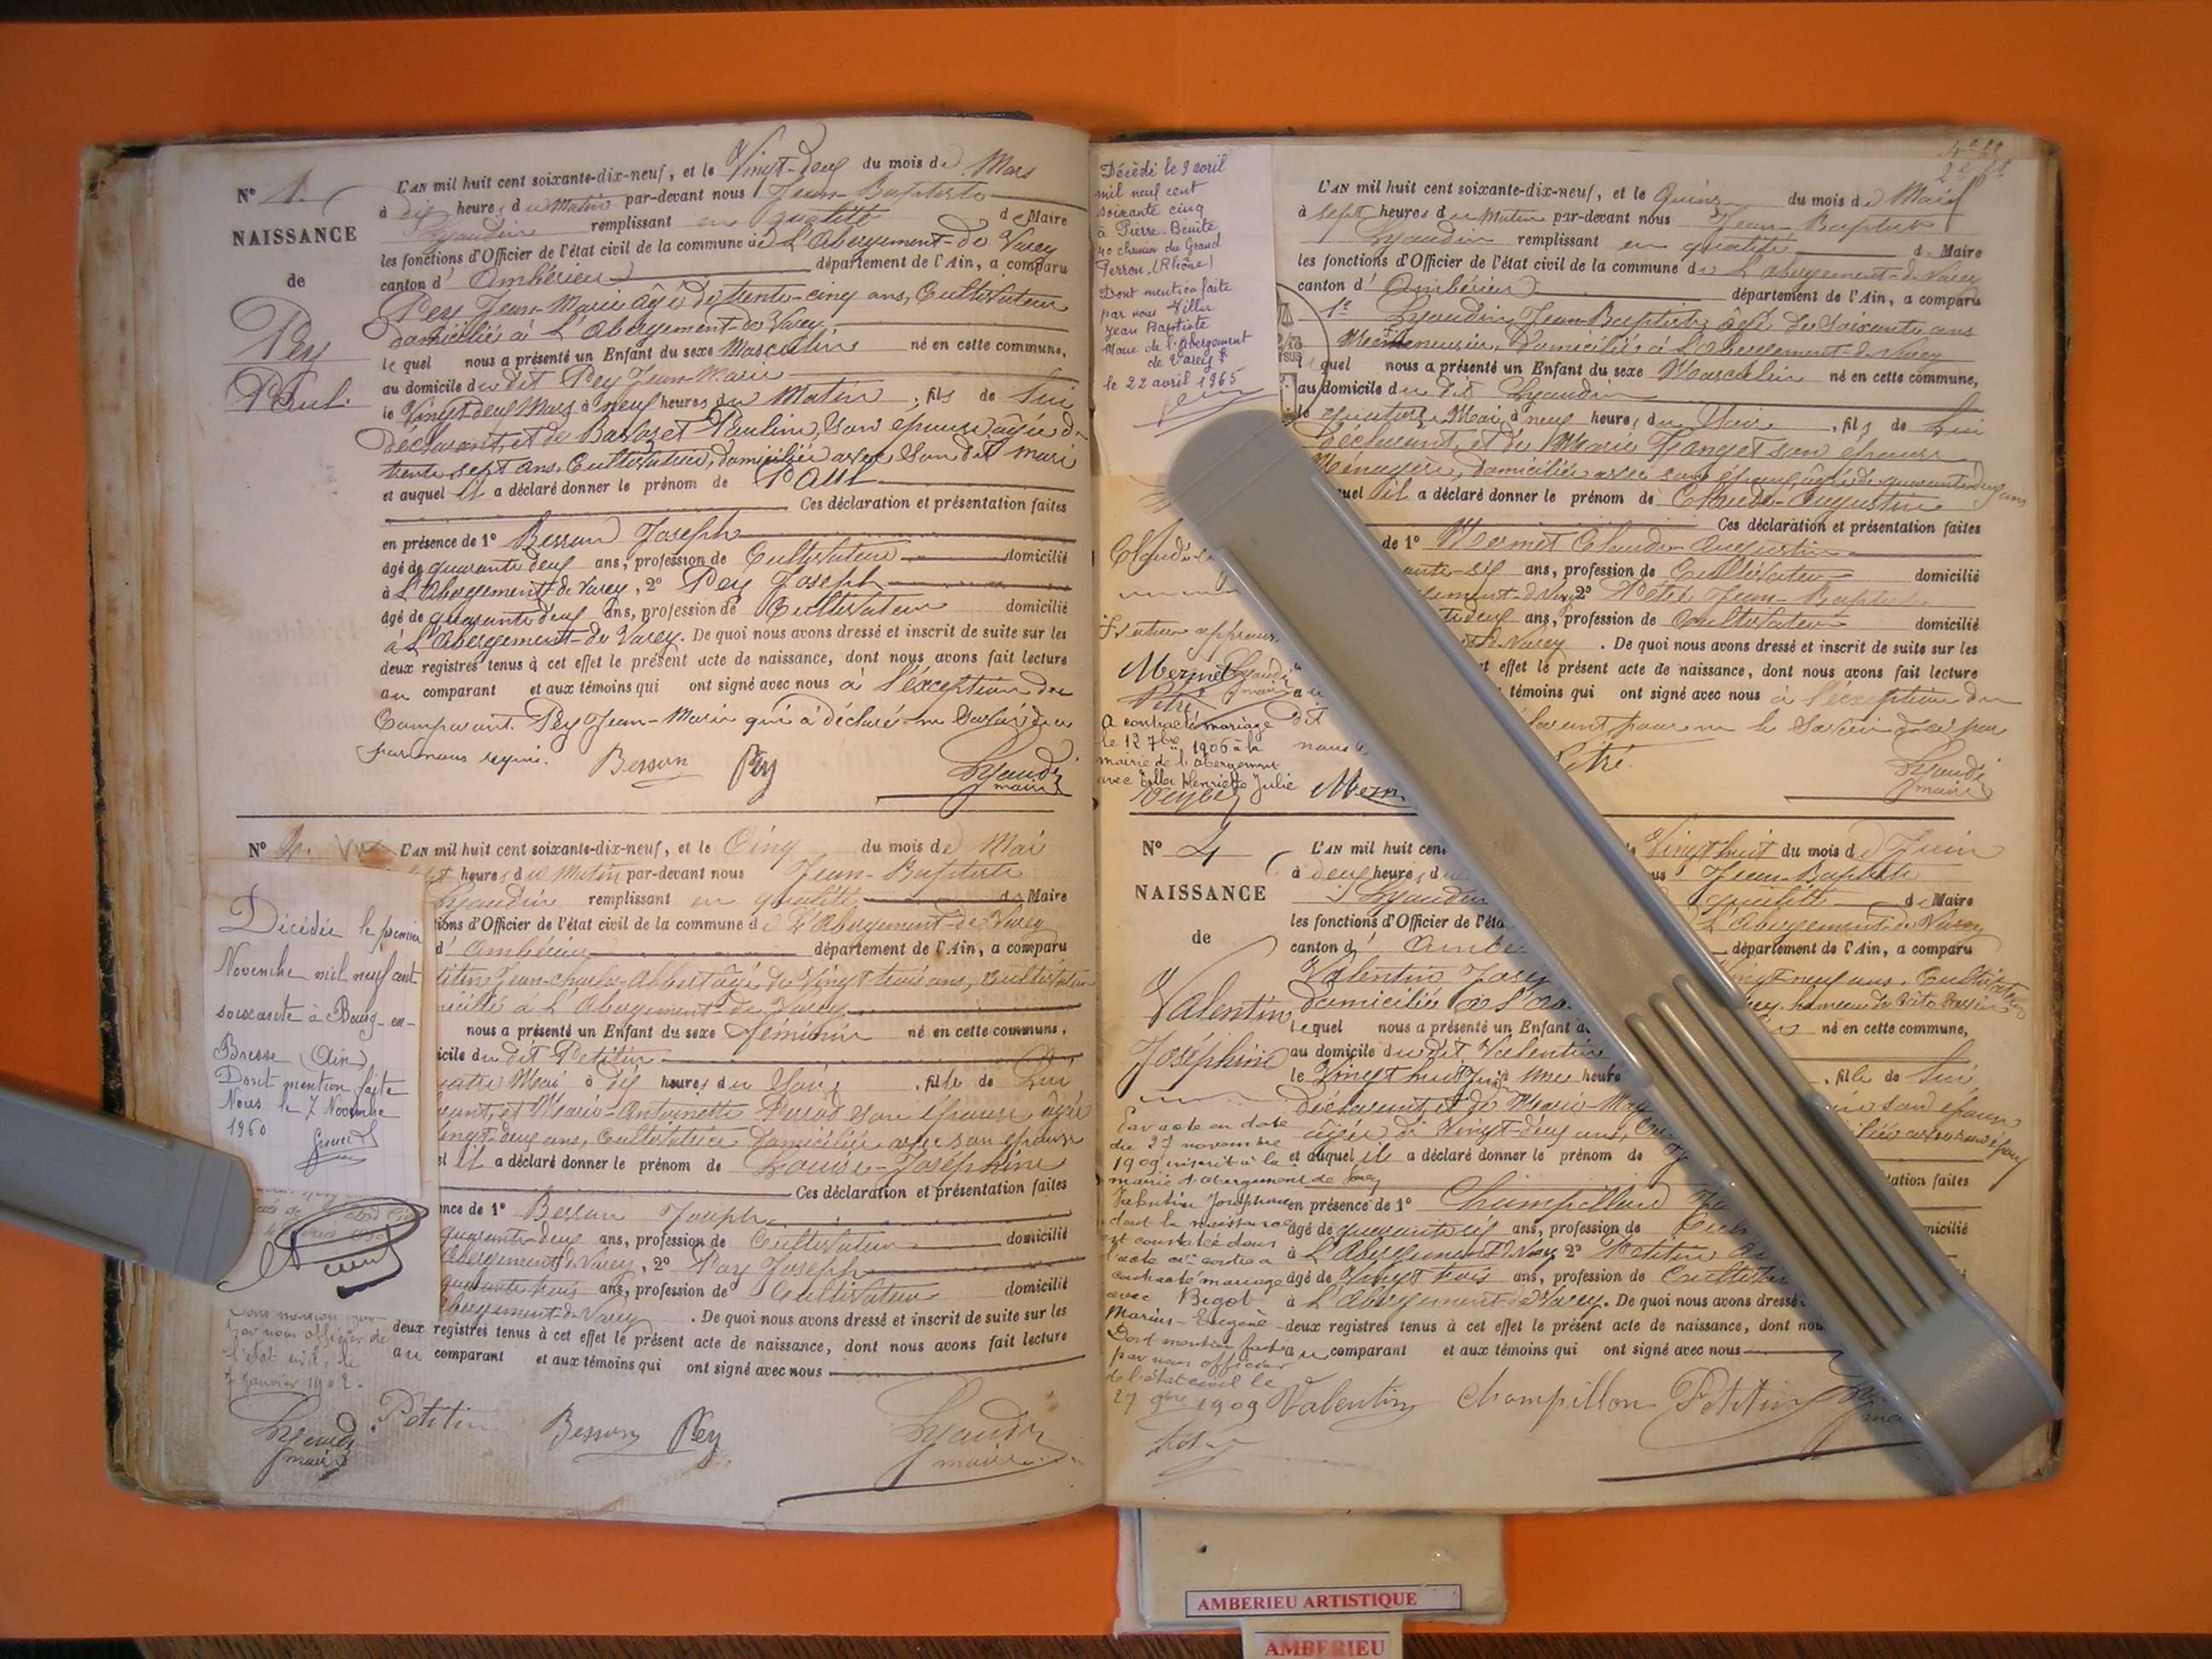 N° 1.
NAISSANCE
de
Pey
Paul.
L'AN mil huit cent soixante-dix-neuf, et le Vingt-deux du mois de Mars
à dix heures du Matin par-devant nous Jean-Baptiste
Lyaudin remplissant en qualité de Maire
les fonctions d'Officier de l'état civil de la commune de L'Abergement-de Varey
canton d' Ambérieu département de l'Ain, a comparu
Pey Jean-Marie âgé de trente-cinq ans, Cultivateur
domicilié à L'Abergement-de Varey
le quel nous a présenté un Enfant du sexe Masculin né en cette commune,
au domicile du dit Pey Jean-Marie
le Vingt deux Mars à neuf heures du Matin, fils de Lui
déclarant, et de Pauline, son épouse âgée de
trente sept ans, Cultivatrice, domiciliée avec son dit mari
et auquel il a déclaré donner le prénom de Paul
Ces déclaration et présentation faites
en présence de 1° Besson Joseph
âgé de quarante deux ans, profession de Cultivateur domicilié
à L'Abergement-de Varey, 2° Pey Joseph
âgé de quarante deux ans, profession de Cultivateur domicilié
à L'Abergement-de Varey. De quoi nous avons dressé et inscrit de suite sur les
deux registres tenus à cet effet le présent acte de naissance, dont nous avons fait lecture
au comparant et aux témoins qui ont signé avec nous à l'exception du
Comparant Pey Jean-Marie qui a déclaré ne savoir de ce
par nous requis. Besson Pey Lyaudin
maire
N° 2.
L'AN mil huit cent soixante-dix-neuf, et le Cinq du mois de Mai
heures du Matin par-devant nous Jean-Baptiste
Lyaudin remplissant en qualité de Maire
tions d'Officier de l'état civil de la commune de L'Abergement-de Varey
d' Ambérieu département de l'Ain, a comparu
titin Jean-Charles-Albert âgé de Vingt trois ans, Cultivateur
micilié à L'Abergement-de Varey
nous a présenté un Enfant du sexe féminin né en cette commune,
icile du dit Petitin
uatre Mai à dix heures du Soir, fille de Lui
rant, et Marie-Antoinette Perrod son épouse âgée
ingt deux ans, Cultivatrice domiciliée avec son épouse
el il a déclaré donner le prénom de Louise-Joséphine
Ces déclaration et présentation faites
nce de 1° Besson Joseph
quarante-deux ans, profession de Cultivateur domicilié
Abergement de Varey, 2° Pey Joseph
quarante trois ans, profession de Cultivateur domicilié
bergement-de Varey. De quoi nous avons dressé et inscrit de suite sur les
deux registres tenus à cet effet le présent acte de naissance, dont nous avons fait lecture
au comparant et aux témoins qui ont signé avec nous
Petitin Besson Pey Lyaudin
maire
Décédée le premier
Novembre mil neuf cent
soixante à Bourg-en-
Bresse (Ain)
Dont mention faite
Nous le 7 Novembre
1960
Dont mention
par nous officier de
l'état civil, le
7 Janvier 1902.
Lyaudin
maire
Décédé le 9 avril
mil neuf cent
soixante cinq
à Pierre-Bénite
40 chemin du Grand
Perron, (Rhône)
Dont mention faite
par nous Tiller
Jean Baptiste
Maire de l'Abergement
de Varey
le 22 avril 1965
Mermet
Pétré
A contracté mariage
le 12 7bre 1906 à la
mairie de l'abergement
avec Henriette Julie
L'AN mil huit cent soixante-dix-neuf, et le Quinze du mois de Mai
à sept heures du Matin par-devant nous Jean-Baptiste
Lyaudin remplissant en qualité de Maire
les fonctions d'Officier de l'état civil de la commune de L'Abergement-de Varey
canton d' Ambérieu département de l'Ain, a comparu
1° Lyaudin Jean-Baptiste âgé de soixante ans
domicilié à L'Abergement-de Varey
quel nous a présenté un Enfant du sexe Masculin né en cette commune,
au domicile du dit Lyaudin
le quatorze Mai à neuf heures du Soir, fils de Lui
déclarant, et de Marie son épouse
Ménagère, domiciliée avec son épouse, âgée de quarante deux ans
quel il a déclaré donner le prénom de Claude-Augustin
Ces déclaration et présentation faites
de 1° Mermet Claude-Augustin
ante-six ans, profession de Cultivateur domicilié
gement-de Varey 2° Pétré Jean-Baptiste
te deux ans, profession de Cultivateur domicilié
de Varey. De quoi nous avons dressé et inscrit de suite sur les
et effet le présent acte de naissance, dont nous avons fait lecture
témoins qui ont signé avec nous à l'exception du
clarant pour ne le savoir de ce par
Pétré. Lyaudin
maire
N° 4
NAISSANCE
de
Valentin
Joséphine
L'AN mil huit cent Vingt huit du mois de Juin
à deux heures du Jean-Baptiste
Lyaudin qualité de Maire
les fonctions d'Officier de l'éta L'Abergement-de Varey
canton d' Ambé département de l'Ain, a comparu
Valentin Jose ingt-neuf ans, Cultivateur
domicilié à L'Ab hameau de
lequel nous a présenté un Enfant né en cette commune,
au domicile du dit Valentin
le Vingt huit Juin à une heure , fille de Lui
déclarant, et de Marie son épouse
âgée de Vingt-deux ans, avec son époux
et auquel il a déclaré donner le prénom de
tation faites
en présence de 1° Champillon
âgé de quarante six ans, profession de Cul micilié
à L'Abergement de Varey 2° Petitin
âgé de Vingt trois ans, profession de Cultivat
à L'Abergement de Varey. De quoi nous avons dressé
deux registres tenus à cet effet le présent acte de naissance, dont nou
au comparant et aux témoins qui ont signé avec nous
Valentin Champillon Petitin
Par acte en date
du 27 novembre
1909 inscrit à la
mairie d'Abergement de Varey
Valentin Joséphine
dont la naissance
est constatée dans
l'acte ci-contre a
contracté mariage
avec Bigot
Marius-Eugène
Dont mention faite
par nous officier
de l'état civil le
27 9bre 1909
AMBERIEU ARTISTIQUE
AMBERIEU